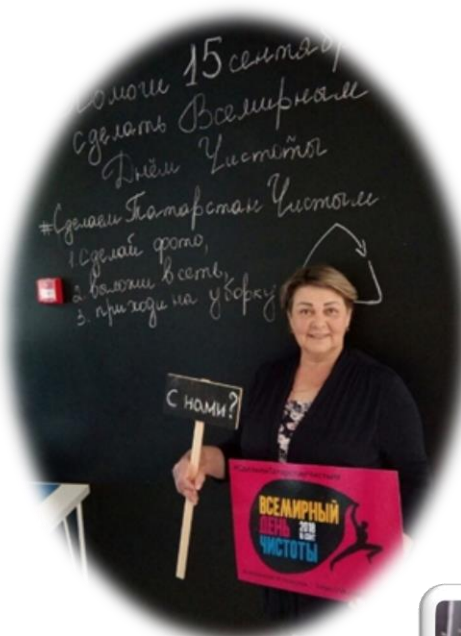 15 сентября
сделать Всемирным
Днём Чистоты
#Сделаем Татарстан Чистым
1. сделай фото,
2. выложи в сеть,
3. приходи на уборку
С нами?
ВСЕМИРНЫЙ
ДЕНЬ 2018
ЧИСТОТЫ